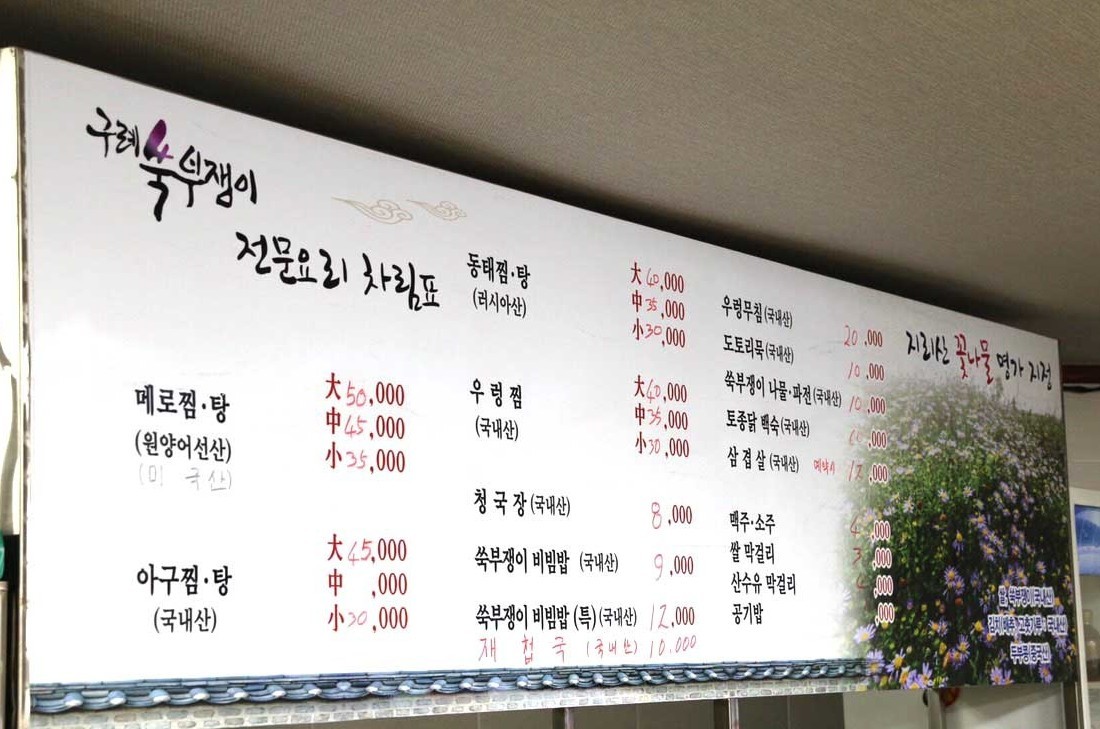 구례 쑥부쟁이
전문요리 차림표
메로찜·탕 大 50,000
(원양어선산) 中 45,000
(미 국 산) 小 35,000
아구찜·탕 大 45,000
(국내산) 中 ,000
小 30,000
동태찜·탕 大 40,000
(러시아산) 中 35,000
小 30,000
우렁찜 大 40,000
(국내산) 中 35,000
小 30,000
청국장 (국내산) 8,000
쑥부쟁이 비빔밥 (국내산) 9,000
쑥부쟁이 비빔밥 (특)(국내산) 12,000
재 첩 국 (국내산) 10.000
우렁무침 (국내산) 20,000
도토리묵 (국내산) 10,000
쑥부쟁이 나물·파전 (국내산) 10,000
토종닭 백숙 (국내산) ,000
삼겹살 (국내산) 예약시 12,000
맥주·소주 4,000
쌀 막걸리 3,000
산수유 막걸리 ,000
공기밥 ,000
지리산 꽃나물 명가 지정
쌀, 쑥부쟁이(국내산)
김치(배추, 고춧가루 : 국내산)
두부콩(중국산)